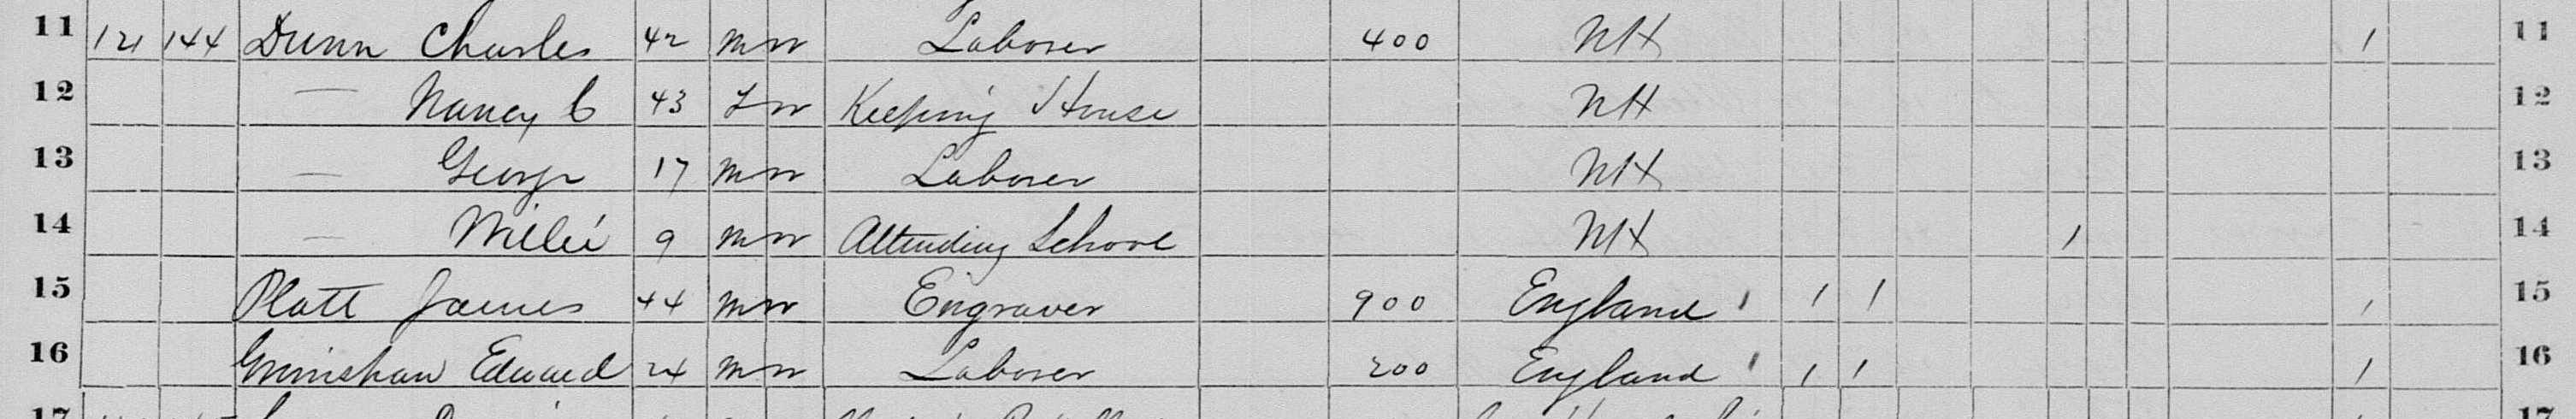 11 121 144 Dunn Charles 42 M W Laborer 400 NH 1 11
12 — Nancy C 43 F W Keeping House NH 12
13 — George 17 M W Laborer NH 13
14 — Willie 9 M W Attending School NH 1 14
15 Platt James 44 M W Engraver 900 England 1 1 1 1 15
16 Grimshaw Edward 24 M W Laborer 200 England 1 1 1 1 16
17 17